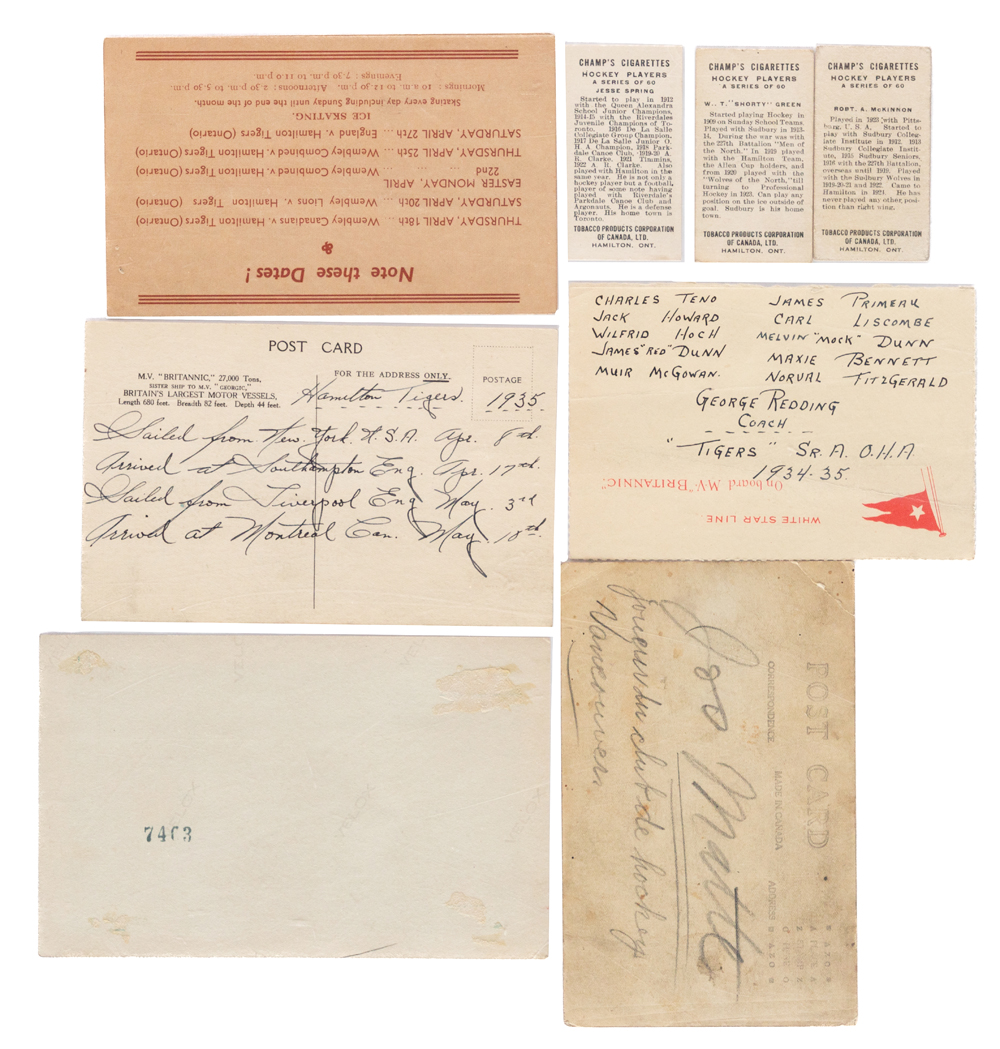 Note these Dates!
&
THURSDAY, APRIL 18th ... Wembley Canadians v. Hamilton Tigers (Ontario)
SATURDAY, APRIL 20th ... Wembley Lions v. Hamilton Tigers (Ontario)
EASTER MONDAY, APRIL
22nd ... ... ... Wembley Combined v. Hamilton Tigers (Ontario)
THURSDAY, APRIL 25th ... Wembley Combined v. Hamilton Tigers (Ontario)
SATURDAY, APRIL 27th ... England v. Hamilton Tigers (Ontario)
ICE SKATING.
Skating every day including Sunday until the end of the month.
Mornings : 10 a.m. to 12.30 p.m. Afternoons : 2.30 p.m. to 5.30 p.m
Evenings : 7.30 p.m. to 11.0 p.m.
CHAMP'S CIGARETTES
HOCKEY PLAYERS
A SERIES OF 60
JESSE SPRING
Started to play in 1912
with the Queen Alexandra
School Junior Champions,
1914-15 with the Riverdales
Juvenile Champions of To-
ronto. 1916 De La Salle
Collegiate Group Champion.
1917 De La Salle Junior O.
H. A Champion, 1918 Park-
dale Canoe Club, 1919-20 A.
R. Clarke, 1921 Timmins,
1922 A. R. Clarke. Also
played with Hamilton in the
same year. He is not only a
hockey player but a football
player of some note having
played with Riverdale's
Parkdale Canoe Club and
Argonauts. He is a defense
player. His home town is
Toronto.
TOBACCO PRODUCTS CORPORATION
OF CANADA, LTD.
HAMILTON, ONT.
CHAMP'S CIGARETTES
HOCKEY PLAYERS
A SERIES OF 60
W. T. "SHORTY" GREEN
Started playing Hockey in
1909 on Sunday School Teams.
Played with Sudbury in 1913-
14. During the war was with
the 227th Battalion "Men of
the North." In 1919 played
with the Hamilton Team,
the Allen Cup holders, and
from 1920 played with the
"Wolves of the North," till
turning to Professional
Hockey in 1923. Can play any
position on the ice outside of
goal. Sudbury is his home
town.
TOBACCO PRODUCTS CORPORATION
OF CANADA, LTD.
HAMILTON, ONT.
CHAMP'S CIGARETTES
HOCKEY PLAYERS
A SERIES OF 60
ROBT. A. McKINNON
Played in 1923 with Pitts-
burg, U. S. A. Started to
play with Sudbury Colleg-
iate Institute in 1912. 1913
Sudbury Collegiate Instit-
ute, 1915 Sudbury Seniors,
1916 with the 227th Battalion,
overseas until 1919. Played
with the Sudbury Wolves in
1919-20-21 and 1922. Came to
Hamilton in 1923. He has
never played any other posi-
tion than right wing.
TOBACCO PRODUCTS CORPORATION
OF CANADA, LTD.
HAMILTON, ONT.
POST CARD
M.V. "BRITANNIC," 27,000 Tons,
SISTER SHIP TO M.V. "GEORGIC,"
BRITAIN'S LARGEST MOTOR VESSELS,
Length 680 feet. Breadth 82 feet. Depth 44 feet.
FOR THE ADDRESS ONLY.
POSTAGE
Hamilton Tigers. 1935.
Sailed from New York. U.S.A. Apr. 8th.
Arrived at Southampton Eng. Apr. 17th.
Sailed from Liverpool Eng May. 3rd
Arrived at Montreal Can. May. 10th.
CHARLES TENO
JACK HOWARD
WILFRID HOCH
JAMES "RED" DUNN
MUIR McGOWAN.
JAMES PRIMEAU
CARL LISCOMBE
MELVIN "MOCK" DUNN
MAXIE BENNETT
NORVAL FITZGERALD
GEORGE REDDING
COACH
"TIGERS" SR. A. O.H.A
1934-35.
WHITE STAR LINE
On board M.V "BRITANNIC"
7463
POST CARD
CORRESPONDENCE MADE IN CANADA ADDRESS
Joo Matte
joueur du club de hockey
Vancouver